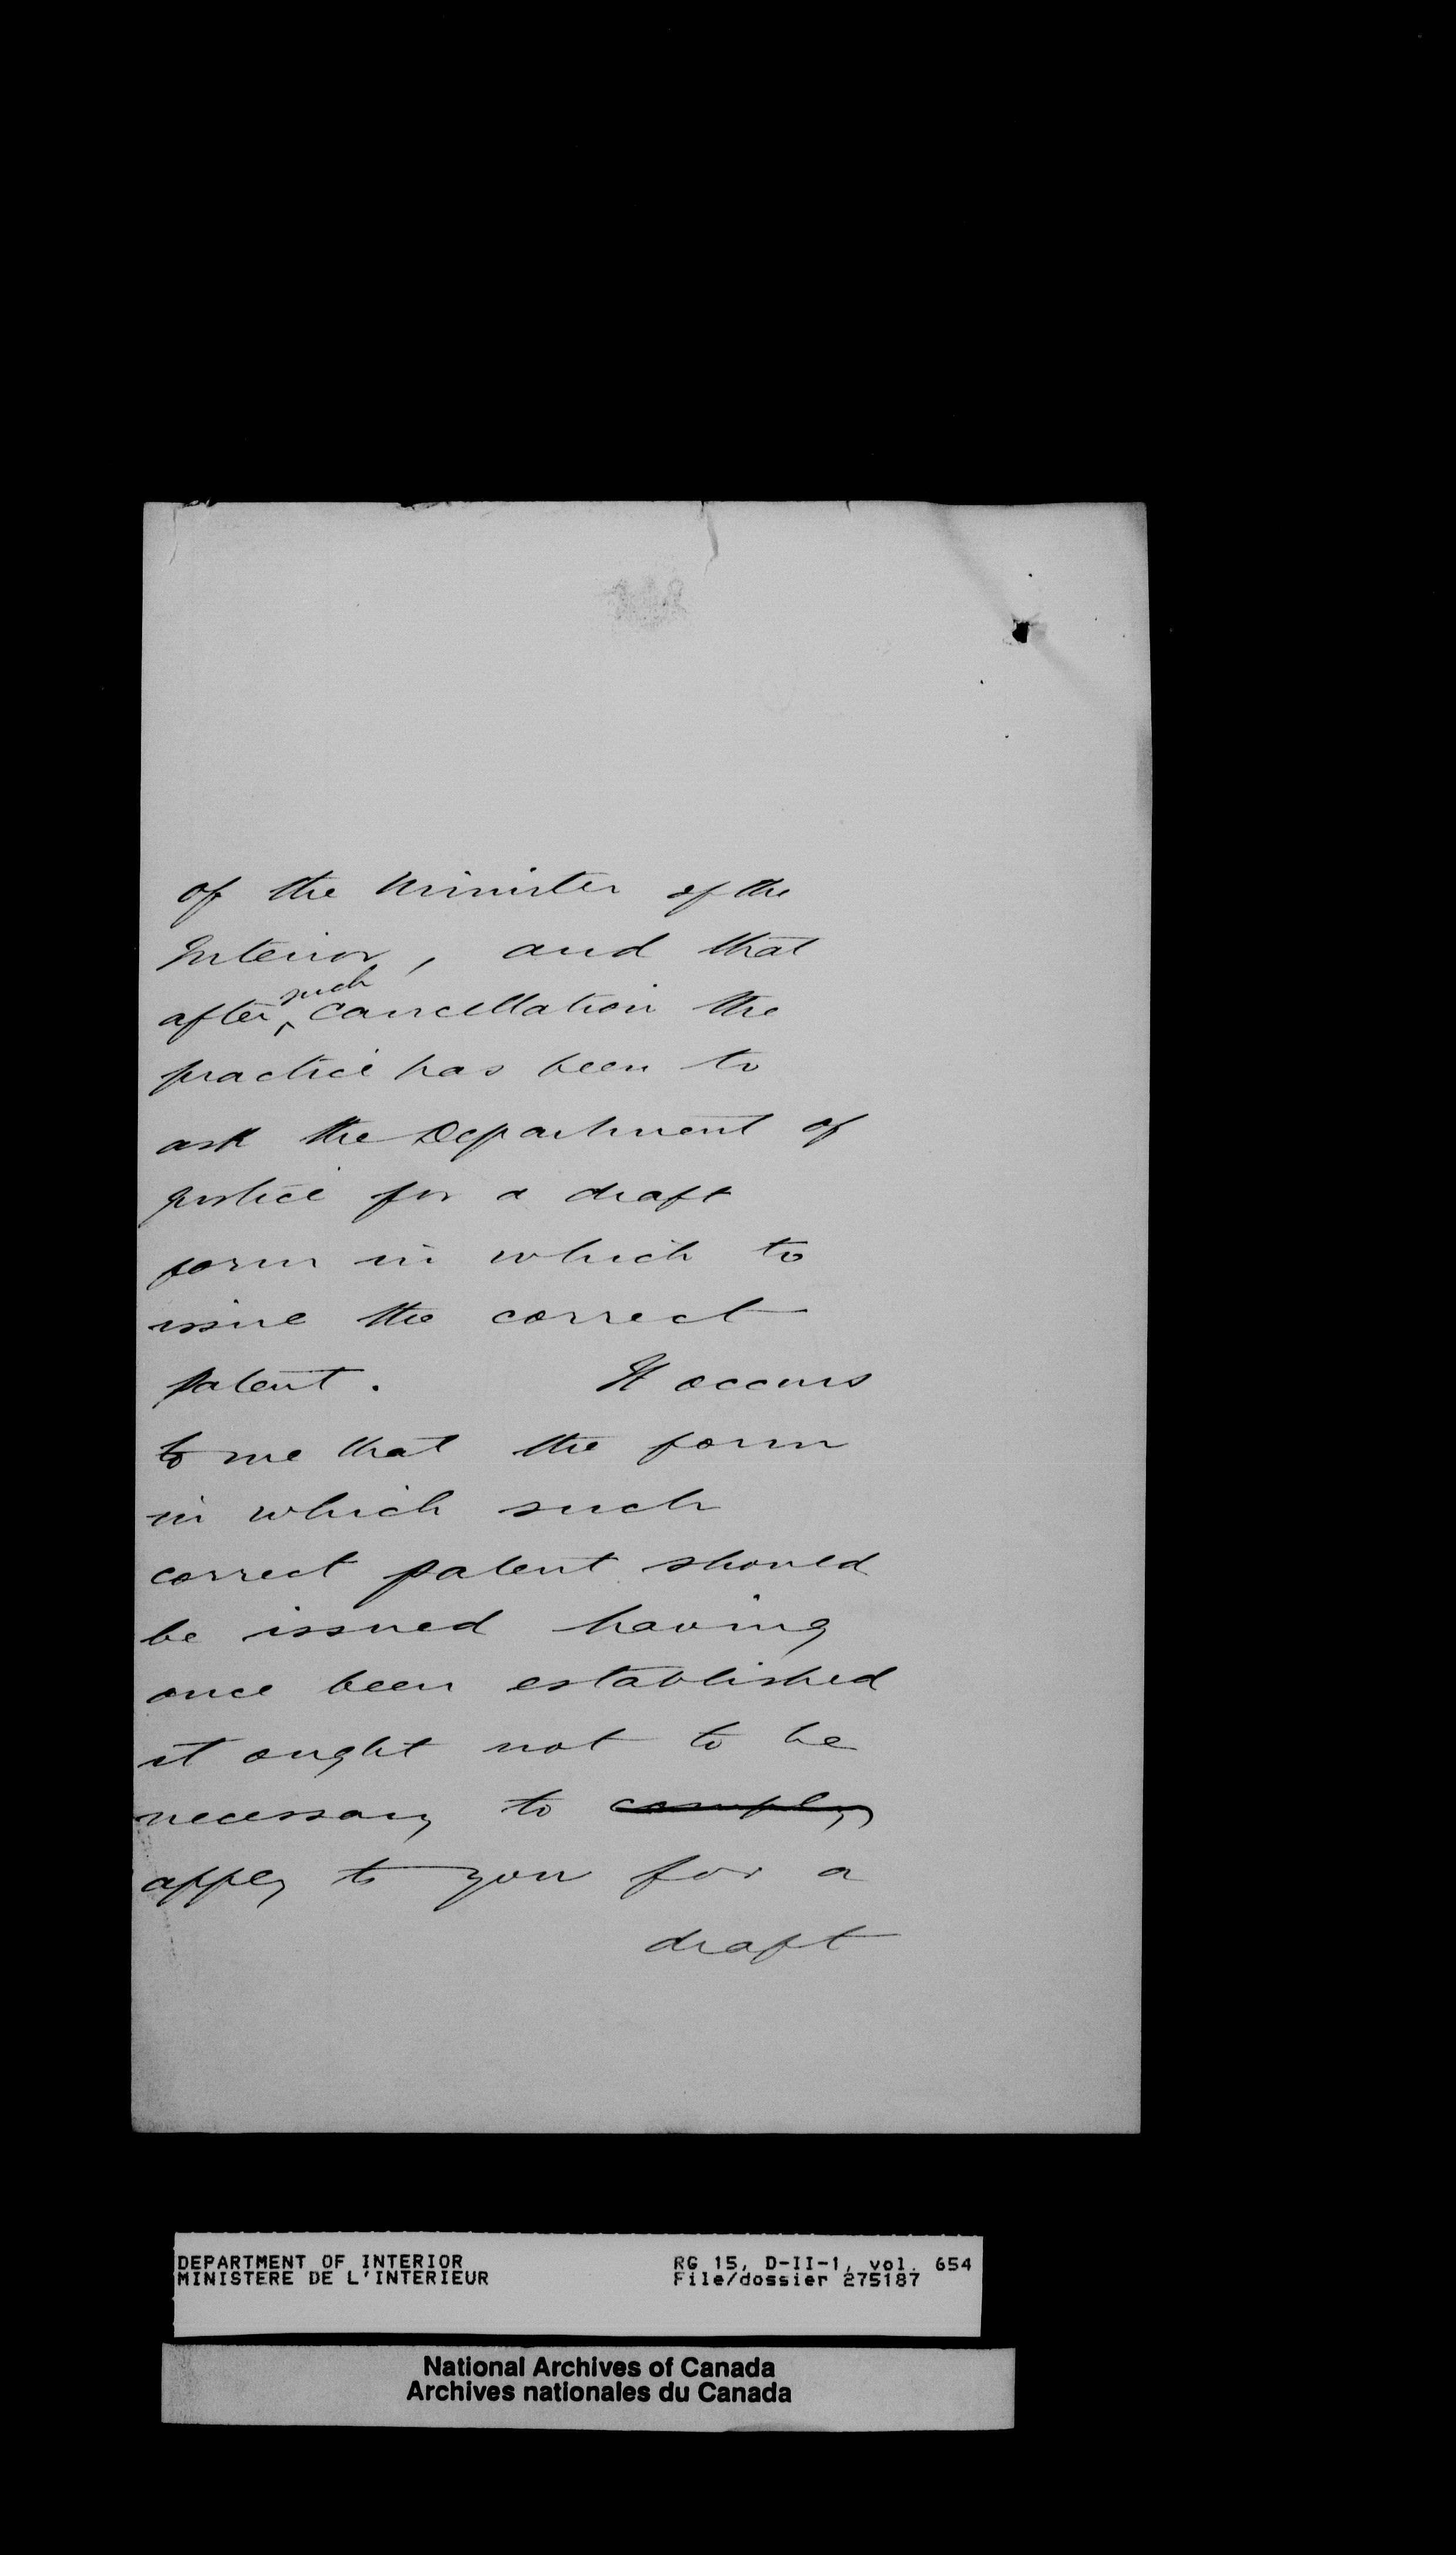 of the Minister of the
Interior, and that
after such cancellation the
practice has been to
ask the Department of
Justice for a draft
form in which to
issue the correct
patent. It occurs
to me that the form
in which such
correct patent should
be issued having
once been established
it ought not to be
necessary to comply
apply to you for a
draft
DEPARTMENT OF INTERIOR RG 15, D-II-1, vol. 654
MINISTERE DE L'INTERIEUR File/dossier 275187
National Archives of Canada
Archives nationales du Canada